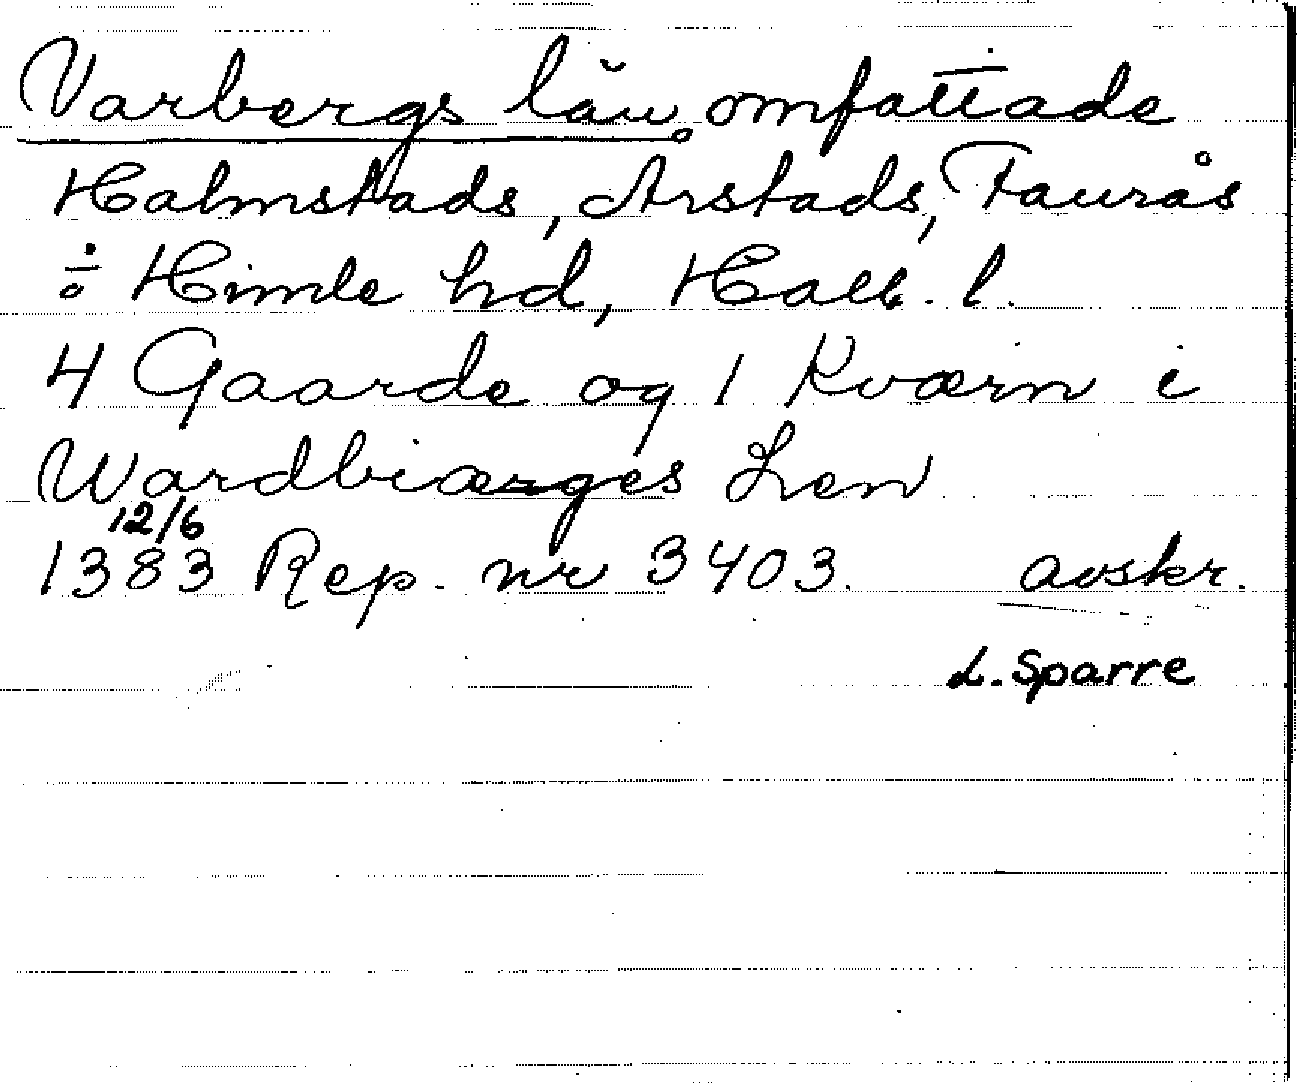 Varbergs län omfattade
Halmstads, Årstads, Faurås
& Himle hd, Hall. l.
4 Gaarde og 1 Kværn i
Wardbiærges Len
12/6
1383 Rep. nr 3403. avskr.
L. Sparre